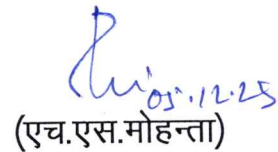 05.12.25
(एच.एस.मोहन्ता)